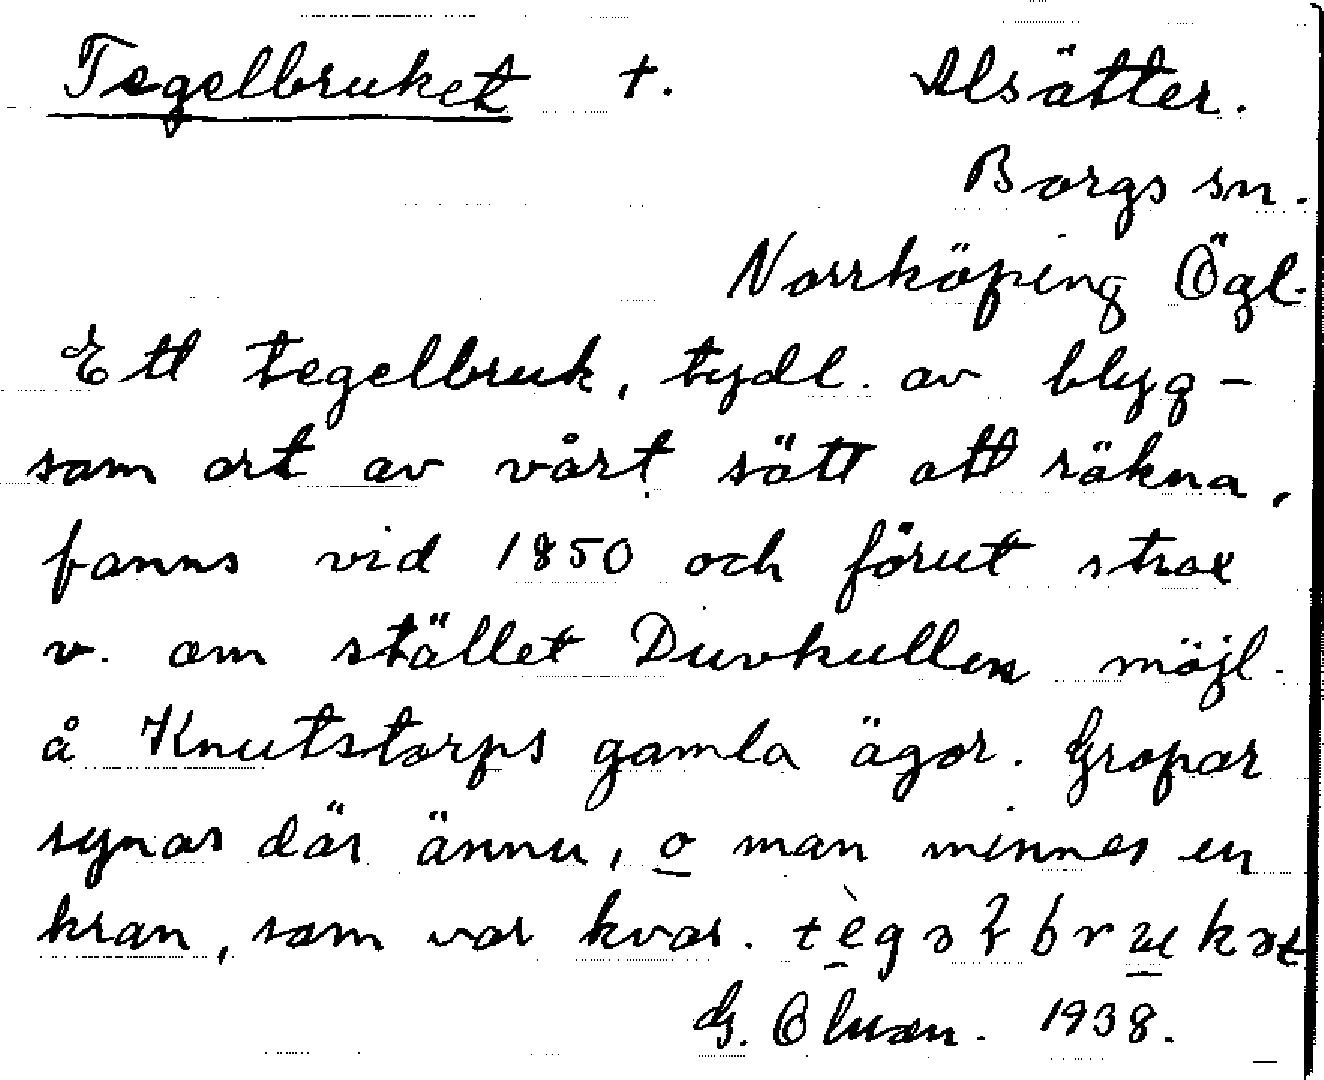 Tegelbruket †. Alsätter.
Borgs sn.
Norrköping Ögl.
Ett tegelbruk, tydl. av blyg-
sam art av vårt sätt att räkna,
fanns vid 1850 och förut strax
v. om stället Duvkullen möjl.
å Knutstorps gamla ägor. Gropar
synas där ännu, o man minnes en
kran, som var kvar.
G. Olsson. 1938.